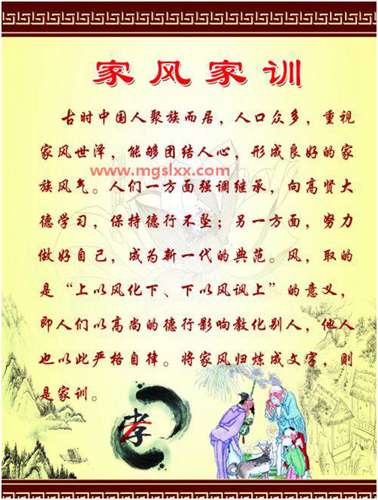 家风家训
古时中国人聚族而居，人口众多，重视
家风世泽，能够团结人心，形成良好的家
族风气。人们一方面强调继承，向高贤大
www.mgslxx.com
德学习，保持德行不坠；另一方面，努力
做好自己，成为新一代的典范。风，取的
是“上以风化下、下以风讽上”的意义，
即人们以高尚的德行影响教化别人，他人
也以此严格自律。将家风归炼成文字，则
是家训。
孝